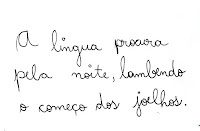 A lingua procura
pela noite, lambendo
o começo dos joelhos.